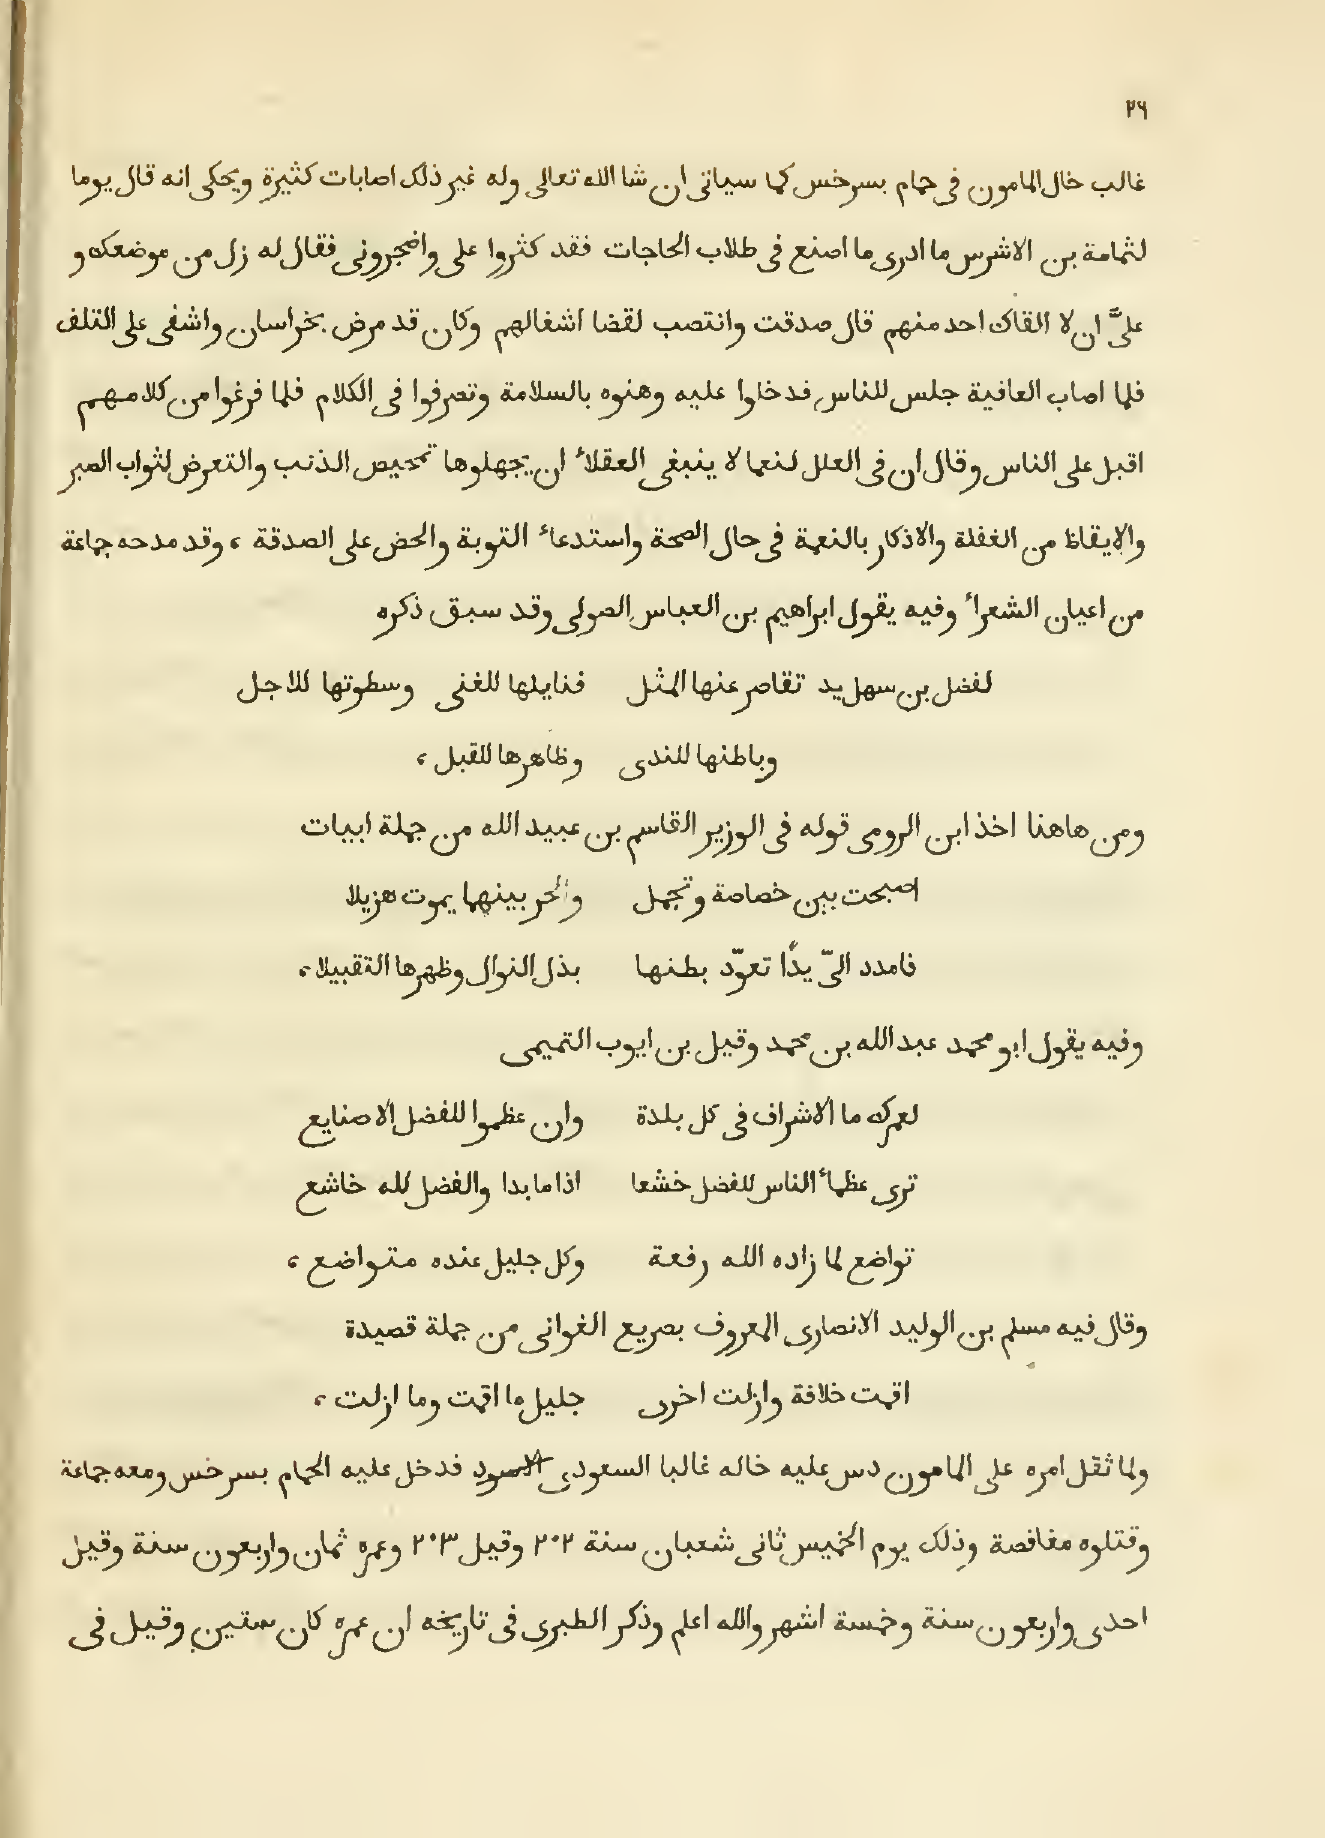 ٢٦
غالب خال المامون فى حمام بسرخس كما سياتى ان شا الله تعالى وله غير ذلك اصابات كثيرة ويحكى انه قال يوما
لثمامة بن الاشرس ما ادرى ما اصنع فى طلاب الحاجات فقد كثروا على واضجرونى فقال له زل من موضعك و
علىَّ ان لا القاك احد منهم قال صدقت وانتصب لقضا اشغالهم وكان قد مرض بخراسان واشفى على التلف
فلما اصاب العافية جلس للناس فدخلوا عليه وهنوه بالسلامة وتصرفوا فى الكلام فلما فرغوا من كلامهم
اقبل على الناس وقال ان فى العلل لنعما لا ينبغى العقلاء ان يجهلوها تحيص الذنب والتعرض لثواب الصبر
والايقاظ من الغفلة والاذكار بالنعمة فى حال الصحة واستدعاء التوبة والحض على الصدقة ، وقد مدحه جماعة
من اعيان الشعراء وفيه يقول ابراهيم بن العباس الصولى وقد سبق ذكره
لفضل بن سهل يد تقاصر عنها المثل فنايلها للغنى وسطوتها للاجل
وباطنها للندى وظاهرها للقبل ،
ومن هاهنا اخذ ابن الرومى قوله فى الوزير القاسم بن عبيد الله من جملة ابيات
اصبحت بين خصاصة وتجمل والحر بينهما يموت هزيلا
فامدد الىّ يدًا تعوّد بطنها بذل النوال وظهرها التقبيلا ،
وفيه يقول ابو محمد عبد الله بن محمد وقيل بن ايوب التميمى
لعمرك ما الاشراف فى كل بلدة وان عظموا للفضل الا صنايع
ترى عظماء الناس للفضل خشعا اذا ما بدا والفضل لله خاشع
تواضع لما زاده الله رفعة وكل جليل عنده متواضع ،
وقال فيه مسلم بن الوليد الانصارى المعروف بصريع الغوانى من جملة قصيدة
اقمت خلافة وازلت اخرى جليل ما اقمت وما ازلت ،
ولما ثقل امره على المامون دس عليه خاله غالبا السعودى الاسود فدخل عليه الحمام بسرخس ومعه جماعة
وقتلوه مغافصة وذلك يوم الخميس ثانى شعبان سنة ٢٠٢ وقيل ٢٠٣ وعمره ثمان واربعون سنة وقيل
احدى واربعون سنة وخمسة اشهر والله اعلم وذكر الطبرى فى تاريخه ان عمره كان ستين وقيل فى